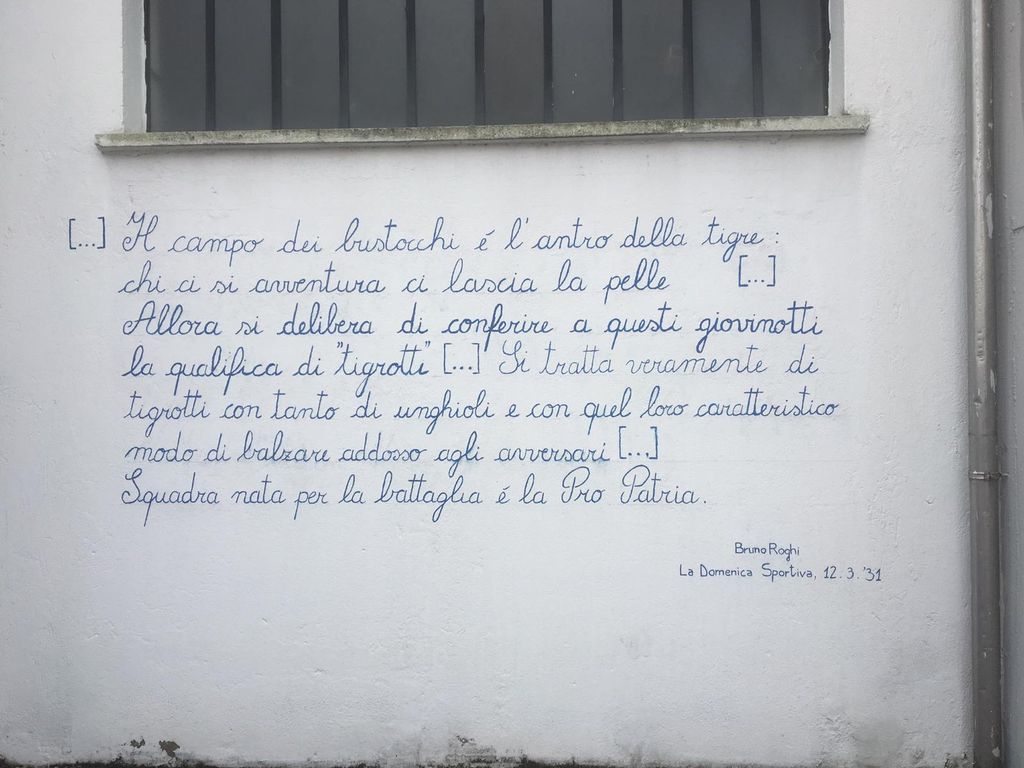 [...] Il campo dei bustocchi é l'antro della tigre:
chi ci si avventura ci lascia la pelle [...]
Allora si delibera di conferire a questi giovinotti
la qualifica di "tigrotti" [...] Si tratta veramente di
tigrotti con tanto di unghioli e con quel loro caratteristico
modo di balzare addosso agli avversari [...]
Squadra nata per la battaglia é la Pro Patria.
Bruno Roghi
La Domenica Sportiva, 12.3.'31